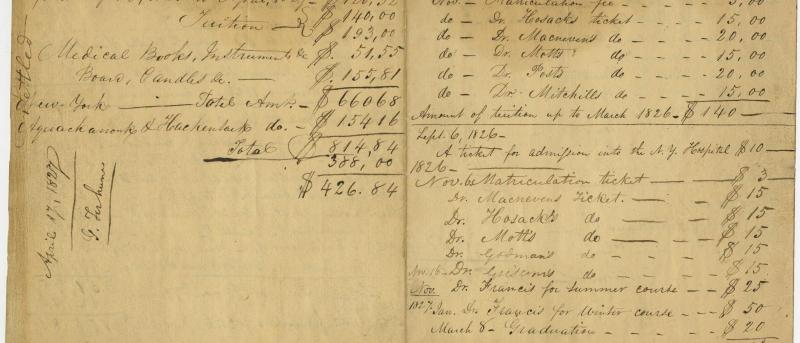 Tuition — $ 140,00
$ 193,00
Medical Books, Instruments &c $. 51,55
Board, Candles &c. — $. 155,81
New-York — Total Amt. - $ 660 68
Aquackanonk & Hackensack do. - $ 154 16
Total $ 814,84
388,00
$ 426.84
Settled
April 17, 1827
Nov. - Matriculation fee - - - 5,00
do - Dr. Hosacks ticket - - - 15,00
do - Dr. Macnevens do - - - 20,00
do - Dr. Motts do - - - 15,00
do - Dr. Posts do - - - 20,00
do - Dr. Mitchills do - - - 15,00
Amount of tuition up to March 1826 - $ 140 —
Sept. 6, 1826 -
A ticket for admission into the N.Y. Hospital $ 10 —
1826 -
Nov. 6 Matriculation ticket — $ 3
Dr. Macnevens ticket. — $ 15
Dr. Hosack's do — $ 15
Dr. Motts do — $ 15
Dr. Godman's do - $ 15
Nov. 16 - Dr. Griscoms do - $ 15
Nov. Dr. Francis for Summer course - - $ 25
1827 Jan. Dr. Francis for Winter course - - $ 50
March 8 - Graduation - - - - $ 20